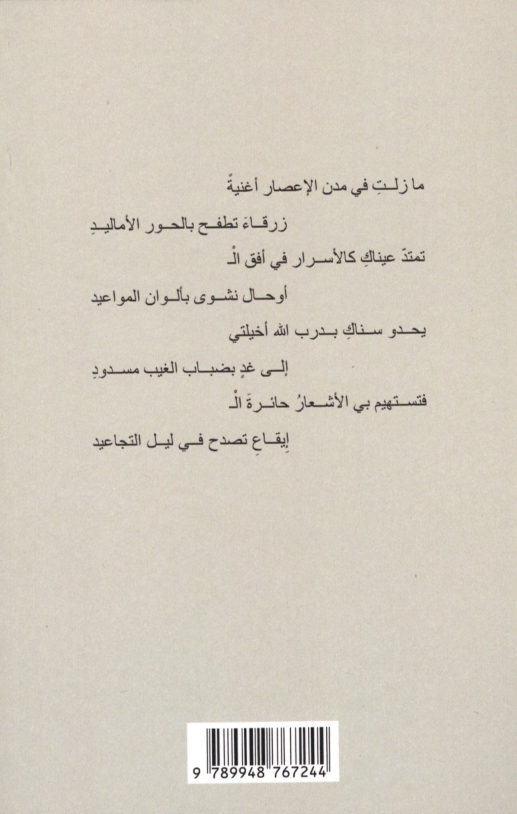 ما زلـتِ في مدن الإعصار أغنيةً
زرقـاءَ تطفـح بالحـور الأماليـدِ
تمتدّ عيناكِ كالأسرار في أفق الْـ
أوحـال نشـوى بألـوان المواعيد
يحـدو سناكِ بـدرب الله أخيلتي
إلـى غدٍ بضباب الغيب مسدودِ
فتستهيم بي الأشعارُ حائرةَ الْـ
إيقـاعِ تصدح فـي ليـل التجاعيد
9 789948 767244